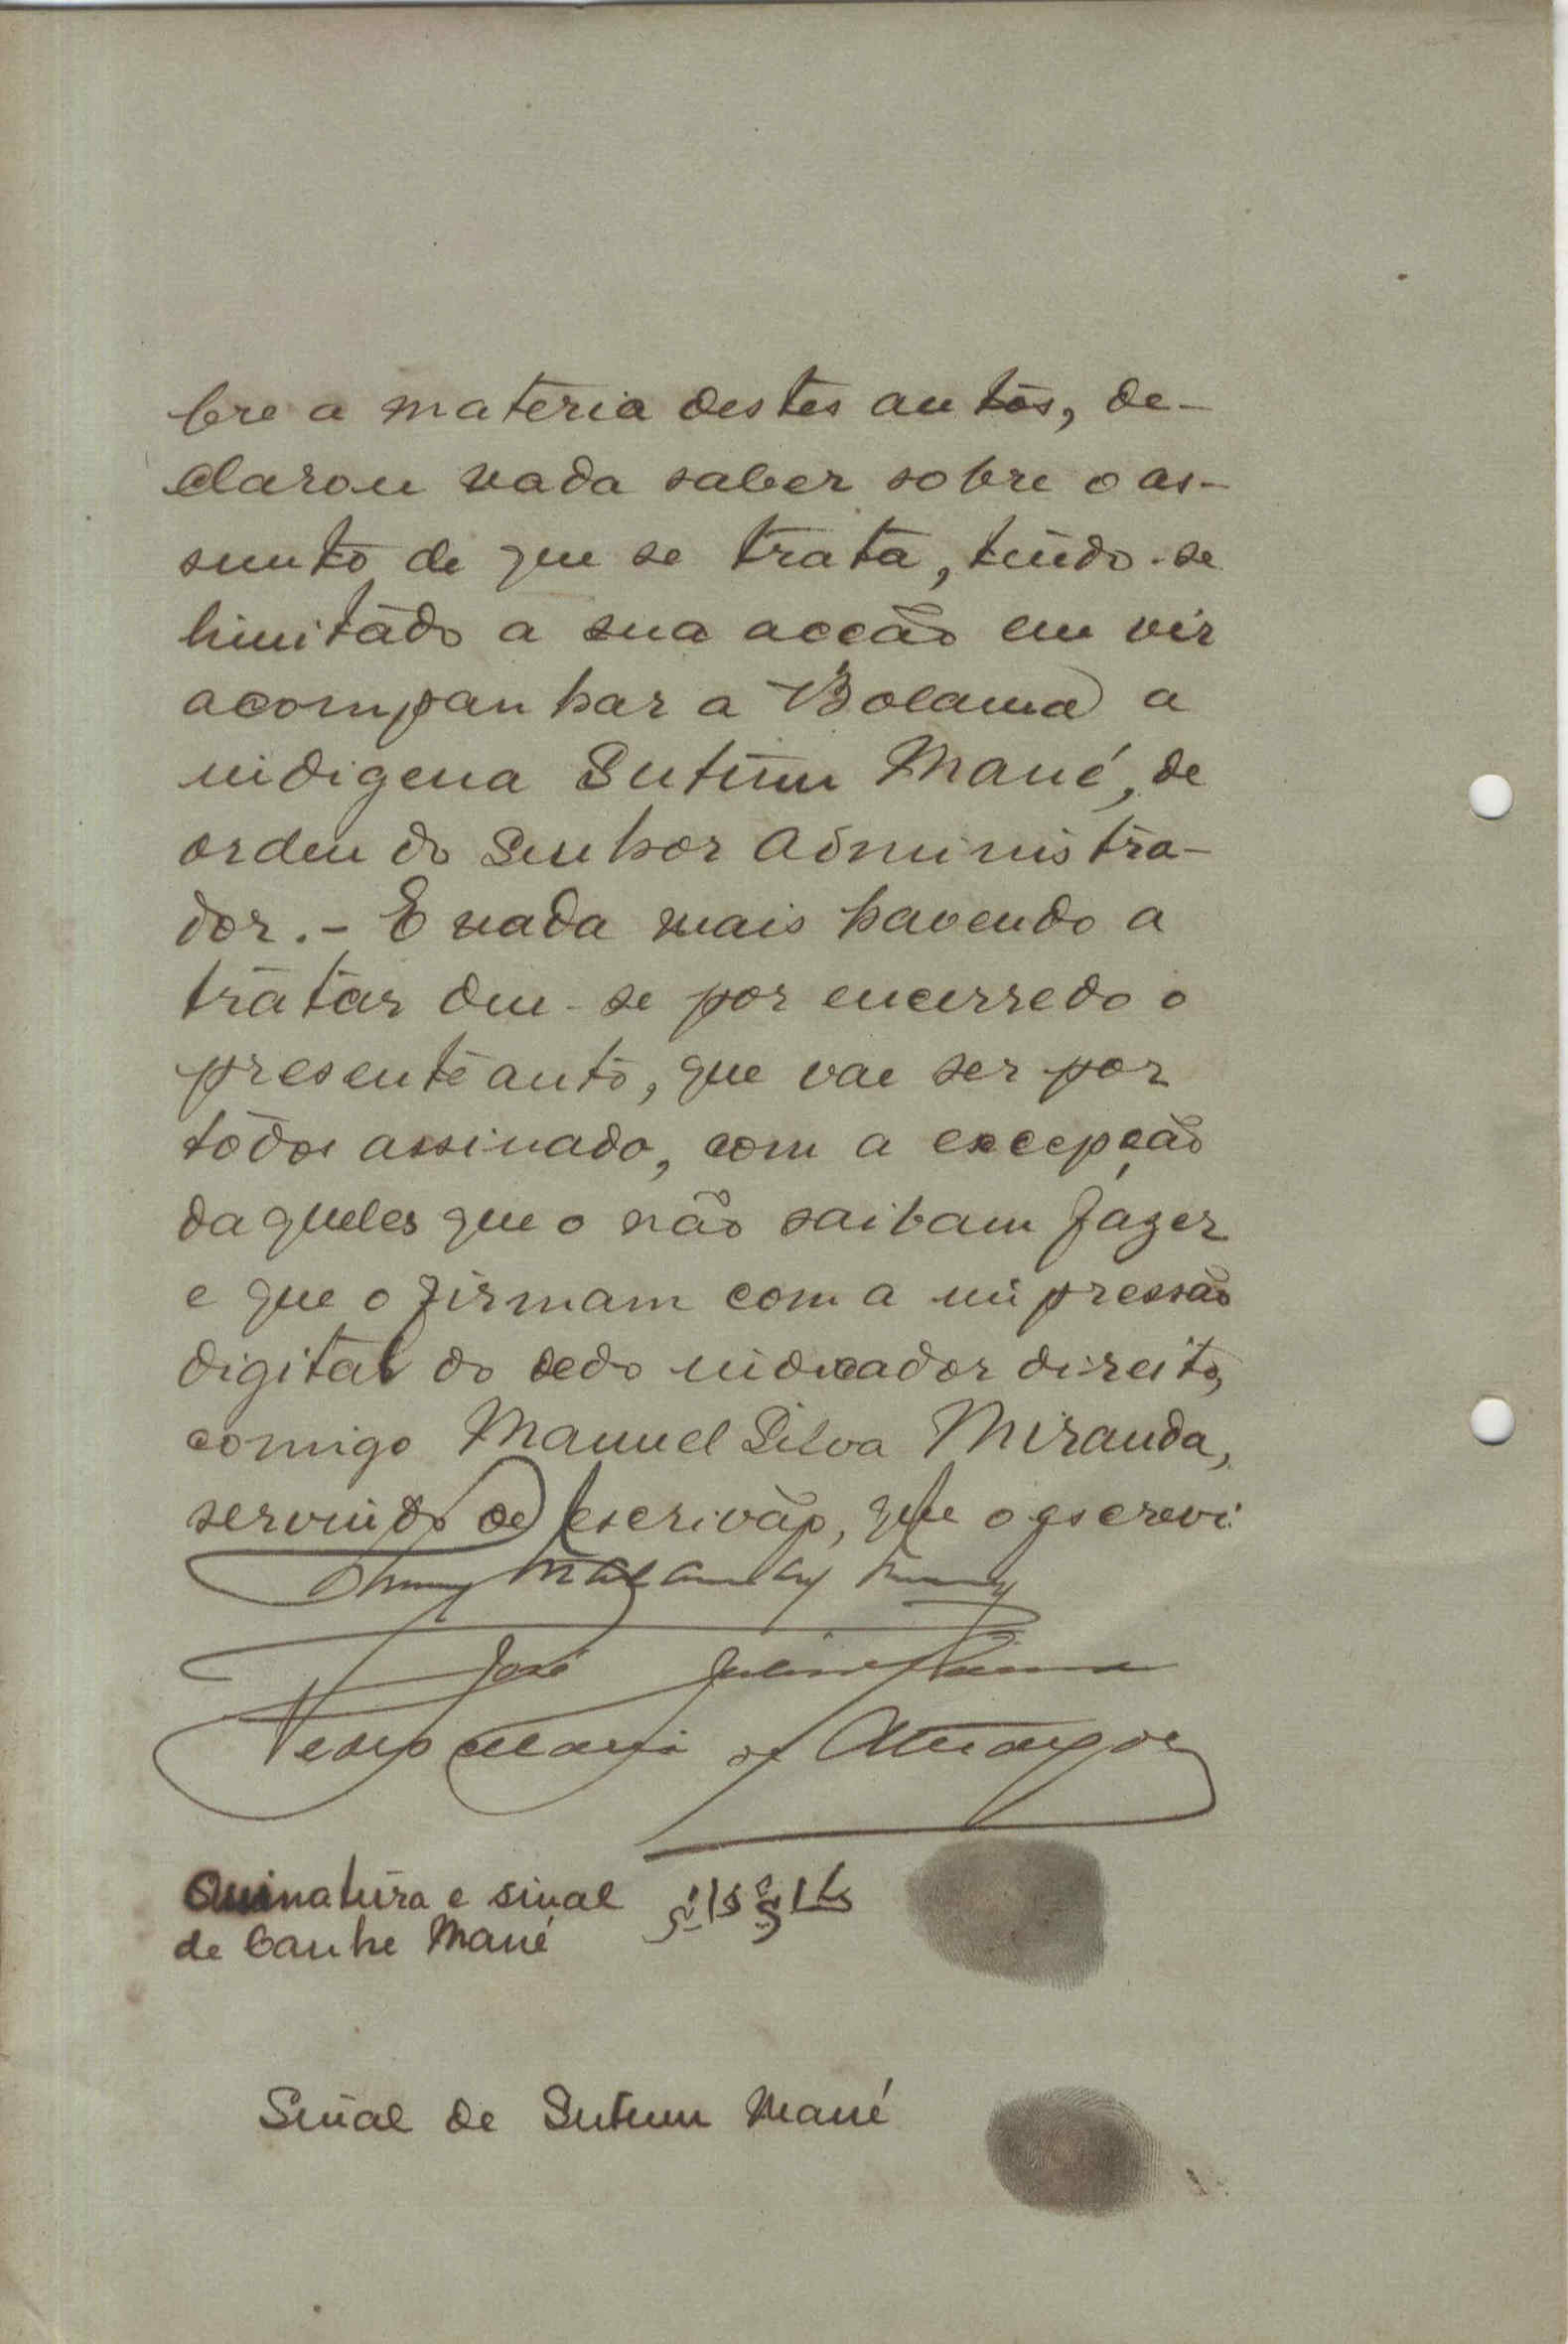 bre a materia destes autos, de-
clarou nada saber sobre o as-
sunto de que se trata, tendo-se
limitado a sua acção em vir
acompanhar a Bolama a
indigena Sutum Mané, de
ordem do Senhor Administra-
dor.- E nada mais havendo a
tratar deu-se por encerrado o
presente auto, que vae ser por
todos assinado, com a excepção
daqueles que o não saibam fazer
e que o firmam com a impressão
digital do dedo indicador direito,
comigo Manuel Silva Miranda,
servindo de escrivão, que o escrevi
José
Pedro Maria de
Assinatura e sinal
de Canhe Mané
Sinal de Sutum Mané